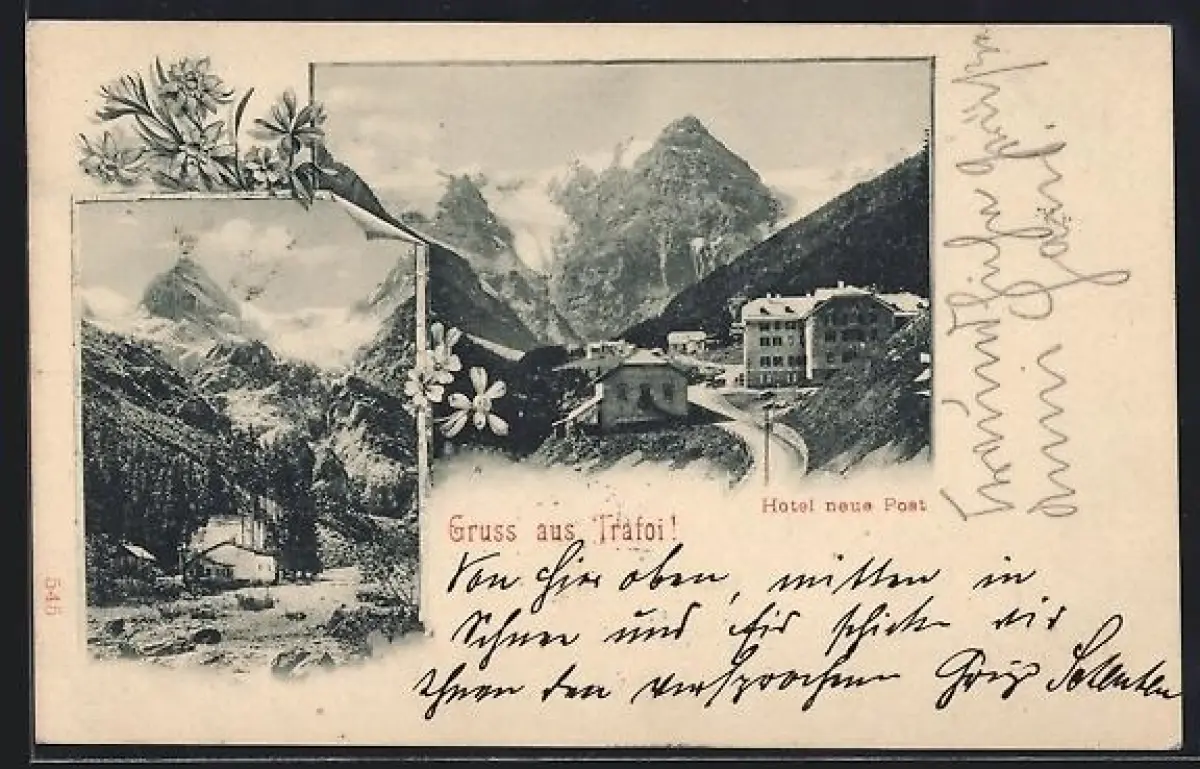 Hotel neue Post
Gruss aus Trafoi!
Von hier oben, mitten in
Schnee und Eis schicke wir
Ihnen den versprochenen Gruß
Freundliche
dein
545